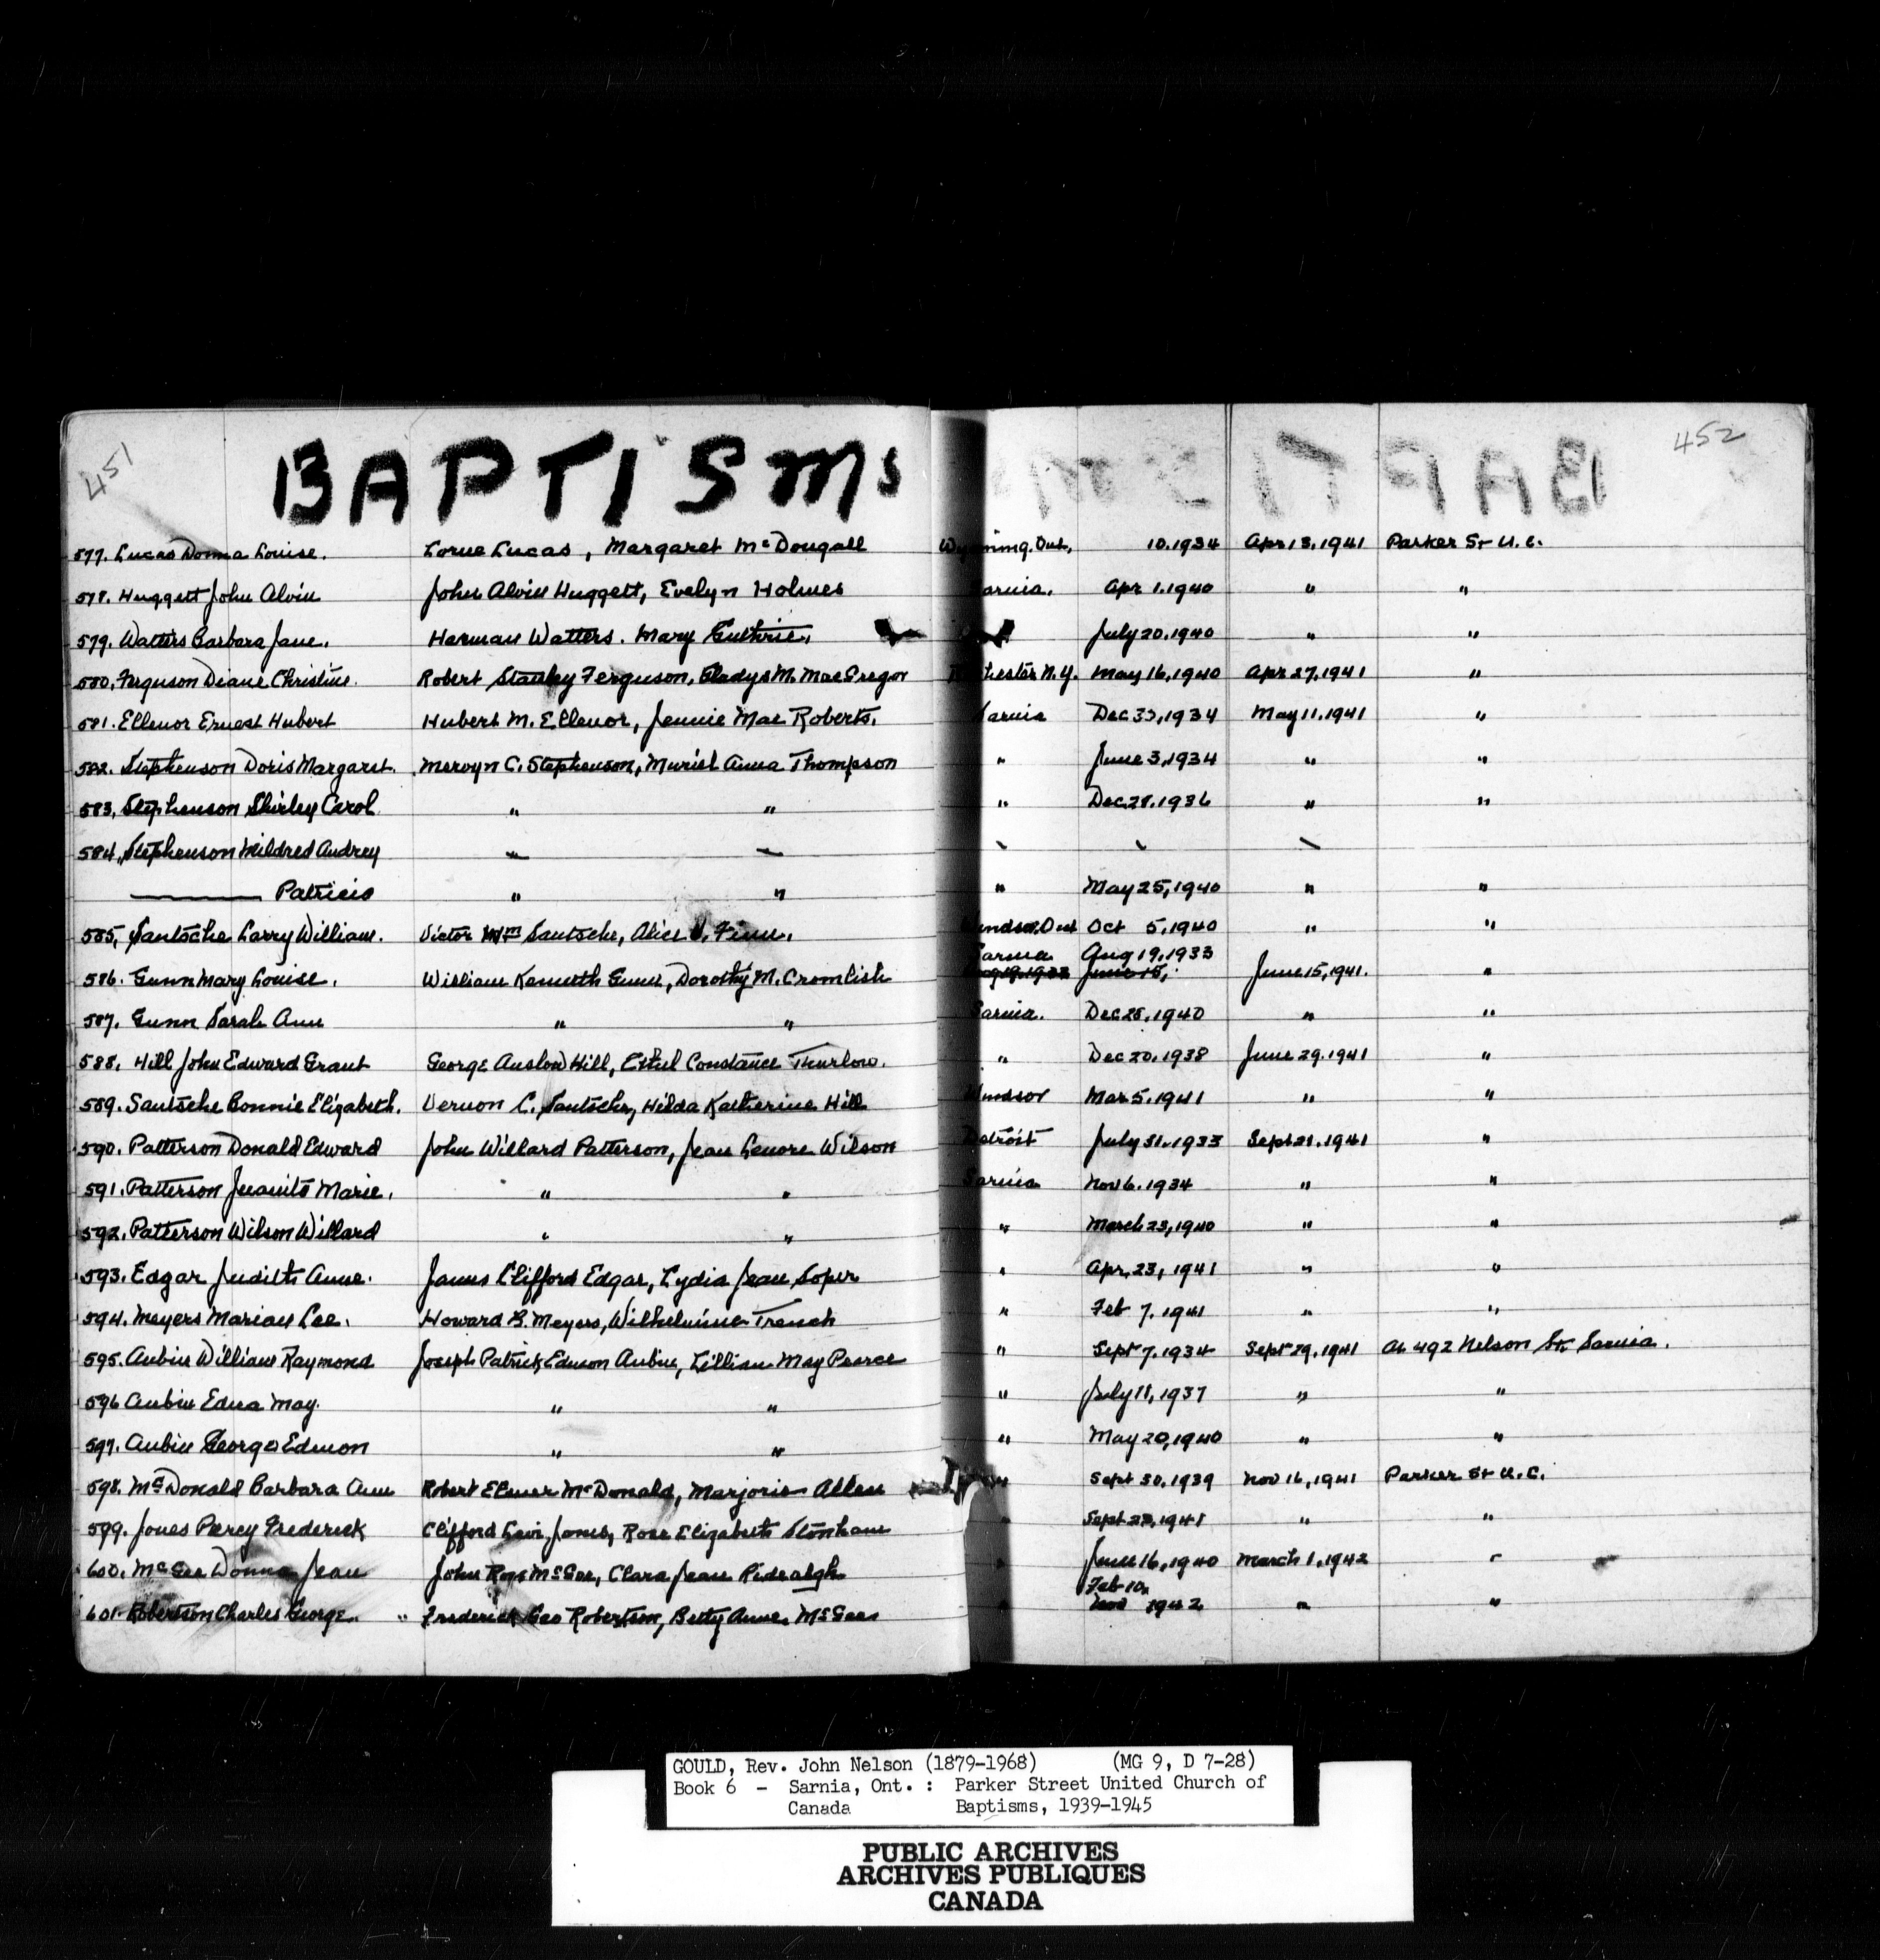 451
BAPTISMS
452
577. Lucas Donna Louise. Lorne Lucas, Margaret McDougall Wyoming. Ont. 10.1934 Apr 13.1941 Parker St U.C.
578. Huggett John Alvin John Alvin Huggett, Evelyn Holmes Sarnia. Apr 1.1940 " "
579. Watters Barbara Jane. Herman Watters. Mary Guthrie. July 20.1940 " "
580. Ferguson Diane Christine. Robert Stanley Ferguson, Gladys M. MacGregor chester N.Y. May 16,1940 Apr 27,1941 "
581. Ellenor Ernest Hubert Hubert M. Ellenor, Jennie Mae Roberts. Sarnia Dec ,1934 May 11.1941 "
582. Stephenson Doris Margaret. Mervyn C. Stephenson, Muriel Anna Thompson " June 3,1934 " "
583. Stephenson Shirley Carol " " " Dec 28.1936 " "
584. Stephenson Mildred Audrey " " " " "
Patricia " " " May 25,1940 " "
585, Santsche Larry William. Victor Wm Santsche, Alice Finn. Windsor, Ont Oct 5,1940 " "
Sarnia Aug 19,1933
586. Gunn Mary Louise. William Kenneth Gunn, Dorothy M. Cromlish Aug 19.1933 June 15, June 15,1941. "
587. Gunn Sarah Ann " " Sarnia. Dec 25,1940 " "
588. Hill John Edward Grant George Anslow Hill, Ethel Constance Thurlow. " Dec 20.1938 June 29.1941 "
589. Santsche Bonnie Elizabeth. Vernon C. Santsche, Hilda Katherine Hill Windsor Mar 5.1941 " "
590. Patterson Donald Edward John Willard Patterson, Jean Lenore Wilson Detroit July 31.1933 Sept 21.1941 "
591. Patterson Juanita Marie. " " Sarnia Nov 6.1934 " "
592. Patterson Wilson Willard " " " March 23,1940 " "
593. Edgar Judith Anne. James Clifford Edgar, Lydia Jean Soper " Apr. 23, 1941 " "
594. Meyers Marian Lee. Howard B. Meyers, Wilhelmina Trench " Feb 7. 1941 " "
595. Aubin William Raymond Joseph Patrick Edmon Aubin, Lillian May Pearce " Sept 7.1934 Sept 29,1941 At 492 Nelson St. Sarnia.
596 Aubin Edna May. " " " July 11,1937 " "
597. Aubin George Edmon " " " May 20,1940 " "
598. McDonald Barbara Ann Robert Elmer McDonald, Marjorie Allen " Sept 30.1939 Nov 16,1941 Parker St U.C.
599. Jones Percy Frederick Clifford Levi Jones, Rose Elizabeth Stonham " Sept 1941 " "
600. McGee Donna Jean John Ross McGee, Clara Jean " June 16,1940 March 1.1942 "
Feb 10
601. Robertson Charles George. " Frederick Geo Robertson, Betty Anne McGee " 1942 " "
GOULD, Rev. John Nelson (1879-1968) (MG 9, D 7-28)
Book 6 - Sarnia, Ont. : Parker Street United Church of
Canada Baptisms, 1939-1945
PUBLIC ARCHIVES
ARCHIVES PUBLIQUES
CANADA